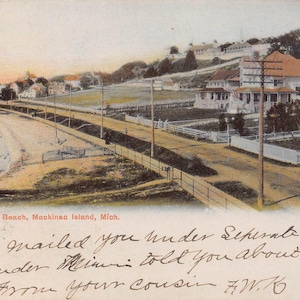 Beach, Mackinac Island, Mich.
I mailed you under Seperate
under told you about
From your cousin F.W.K